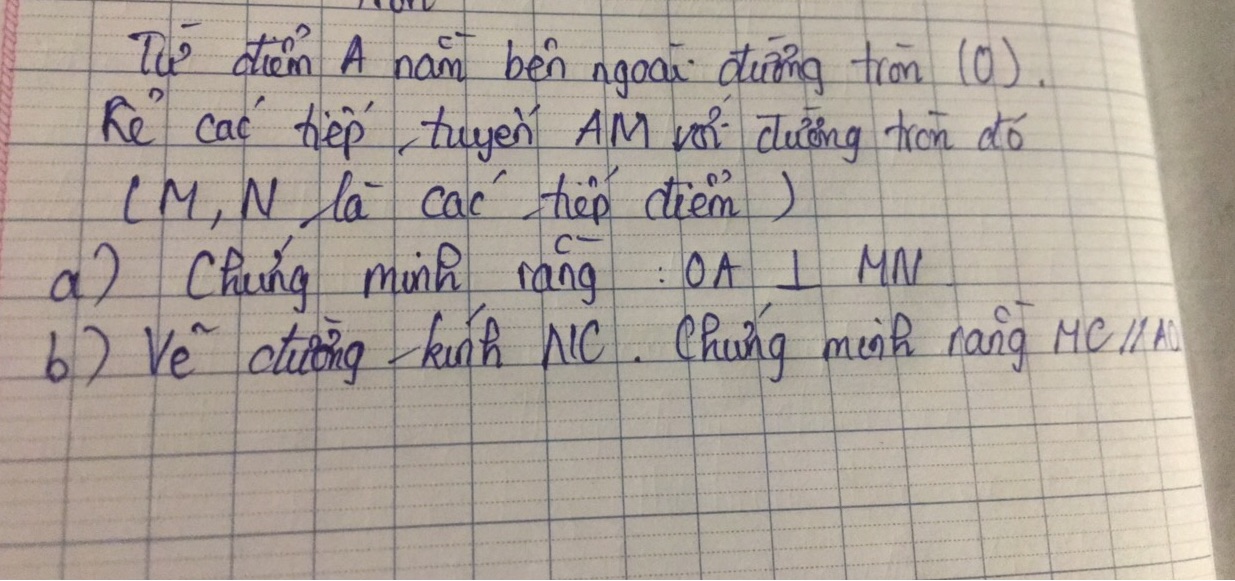 Từ điểm A nằm bên ngoài đường tròn (O).
Kẻ các tiếp tuyến AM với đường tròn đó
(M, N là các tiếp điểm)
a) Chứng minh rằng : OA ⊥ MN
b) Vẽ đường kính NC. Chứng minh rằng MC // AO